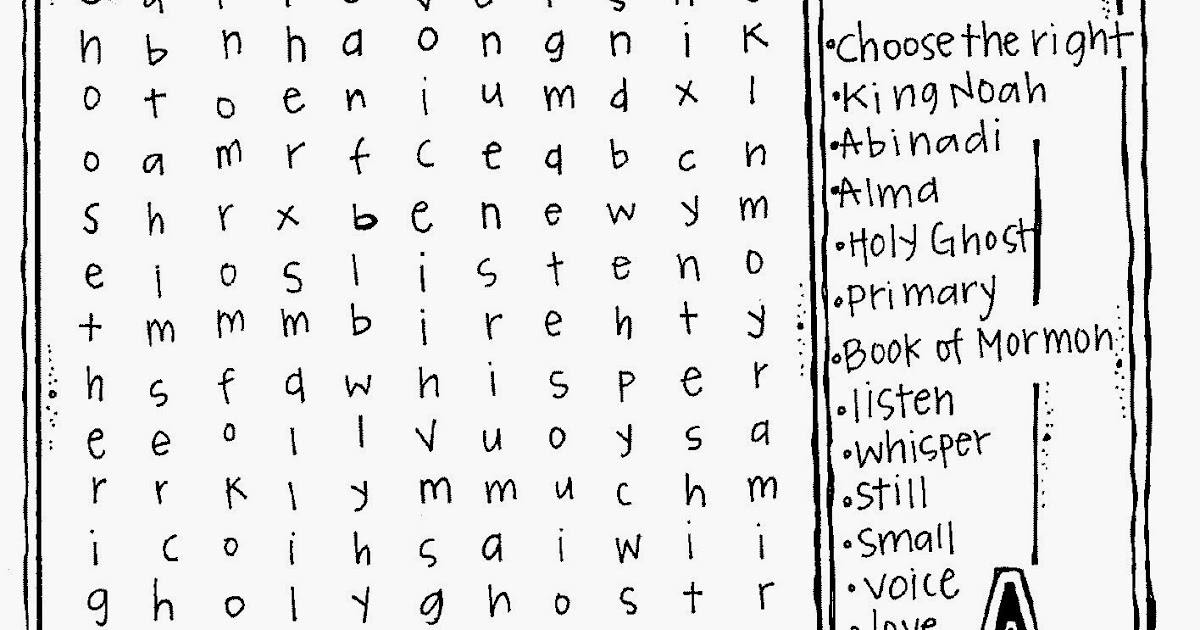 h b n h a o n g n i K
o t o e n i u m d x l
o a m r f c e q b c n
s h r x b e n e w y m
e i o s l i s t e n o
t m m m b i r e h t y
h s f a w h i s p e r
e e o l l v u o y s a
r r k l y m m u c h m
i c o i h s a i w i i
g h o l y g h o s t r
•choose the right
•King Noah
•Abinadi
•Alma
•Holy Ghost
•primary
•Book of Mormon
•listen
•whisper
•still
•small
•voice
•love
A